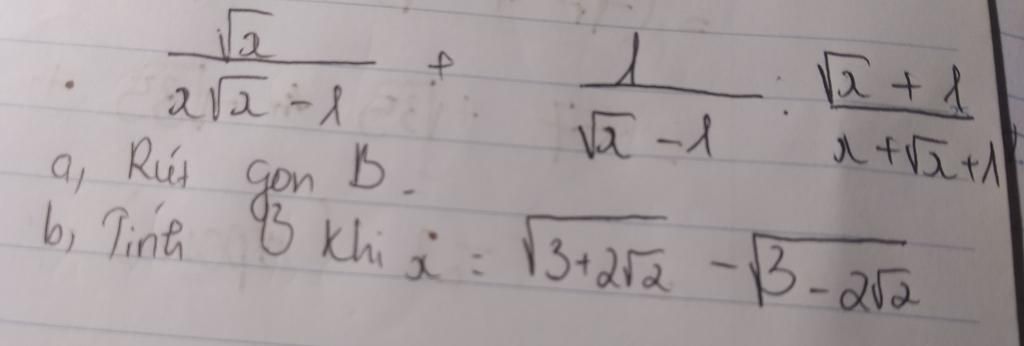 . √x / (x√x - 1) + 1 / (√x - 1) : (√x + 1) / (x + √x + 1)
a, Rút gọn B.
b, Tính B khi x = √(3+2√2) - √(3-2√2)